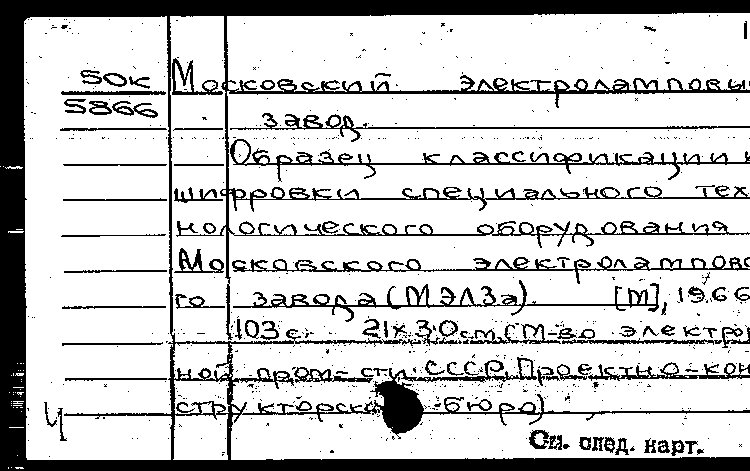 1
50к Московский электроламповы
5866 завод.
Образец классификации и
шифровки специального тех
нологического оборудования
Московского электролампово
го завода (МЭЛЗа). [М], 1966
103 с. 21х30см. (М-во электрон
ной пром-сти СССР. Проектно-кон
структорско бюро)
Ч
См. след. карт.